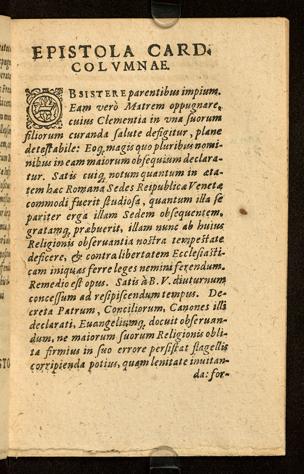 EPISTOLA CARD.
COLVMNAE.
OBSISTERE parentibus impium.
Eam verò Matrem oppugnare,
cuius Clementia in vna suorum
filiorum curanda salute defigitur, plane
detestabile: Eoq́; magis quo pluribus nomi-
nibus in eam maiorum obsequium declara-
tur. Satis cuiq; notum quantum in ætā
tem hac Romana Sedes Reipublicæ Venetæ
commodi fuerit studiosa, quantum illa se
pariter erga illam Sedem obsequentem,
gratamq́; præbuerit, illam nunc ab huius
Religionis obseruantia nostra tempestate
deficere, & contra libertatem Ecclesiasti-
cam iniquas ferre leges nemini ferendum.
Remedio est opus. Satis à B. V. diuturnum
concessum ad resipiscendum tempus. De-
creta Patrum, Conciliorum, Canones illi
declarati, Euangeliumq́; docuit obseruan-
dum, ne maiorum suorum Religionis obli-
ta firmius in suo errore persistat flagellis
corripienda potius, quam lenitate inuitan-
da: for-